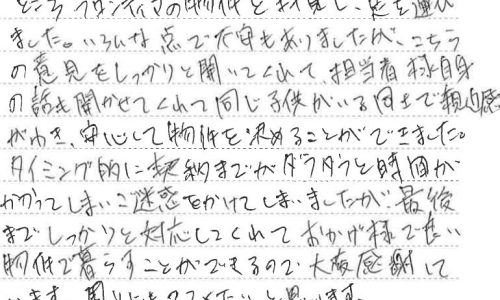 ところ フロンティアの物件を拝見し、足を運び
ました。いろんな点で不安もありましたが、こちら
の意見をしっかりと聞いてくれて、担当者様自身
の話も聞かせてくれて同じ子供がいる同士で親近感
がわき、安心して物件を決めることができました。
タイミング的に契約までがダラダラと時間が
かかってしまいご迷惑をかけてしまいましたが、最後
までしっかりと対応してくれて おかげ様で良い
物件で暮らすことができるので 大変感謝して
います。周りにもススメたいと思います。